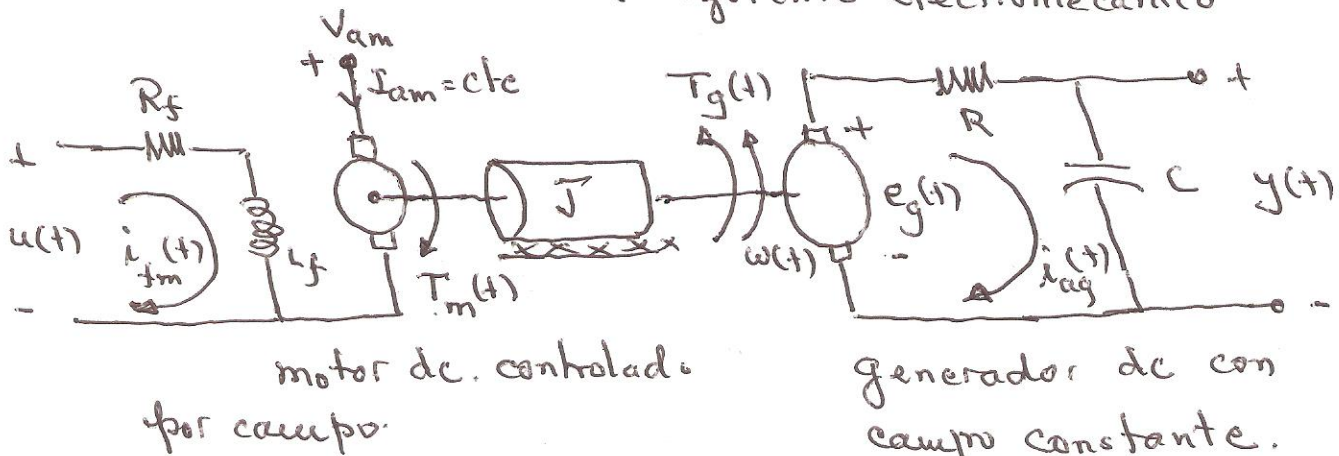 electromecánico
Vam
+
Iam = cte
Rf
+
u(t)
ifm(t)
Lf
-
Tm(t)
J
Tg(t)
ω(t)
+
eg(t)
-
R
iag(t)
C
+
y(t)
-
motor dc. controlado
por campo.
generador dc con
campo constante.